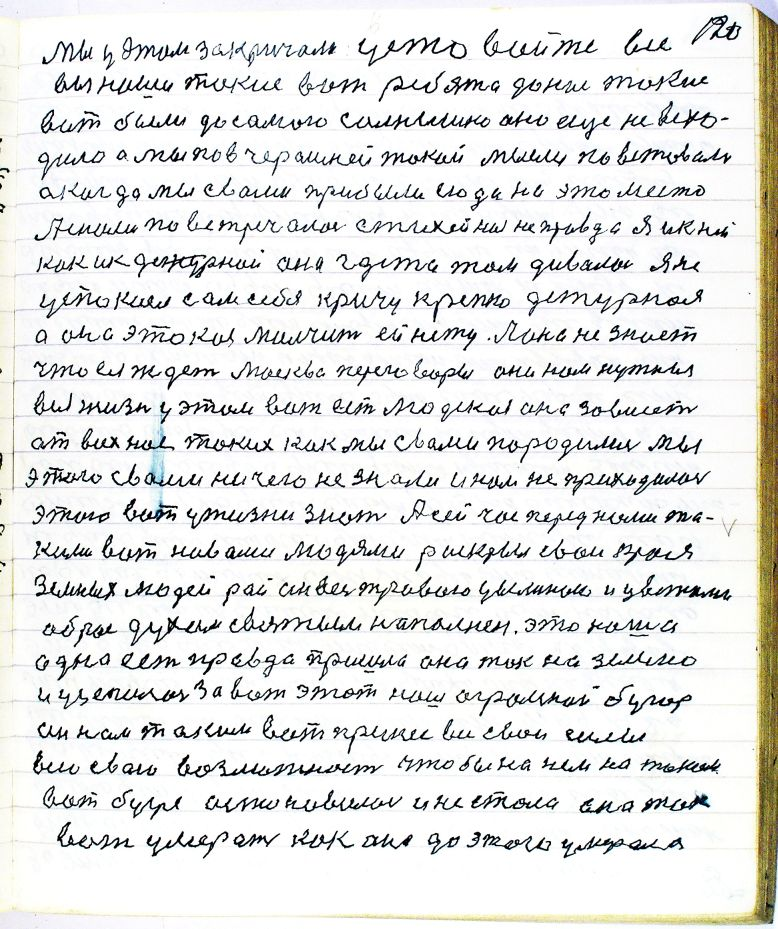 120
мы у этом закричали устовайте все
вы наши такие вот ребята доне такие
вот были до самого солнышко оно еще не вехо-
дило а мы по вчерашней такой мысли поветовали
а когда мы свами прибыли сюда на это место
Леноли по встречалас стихейна неправда Я ик ней
как ик дежурной она гдета там дивалас я не
успокоел сам себя кричу крепко дежурная
а она этокая молчит ей нету. Яона не знает
что ее ждет Москва переговоры они нам нужныя
все жизн у этом вот ест людская она зависет
от вех нас таких как мы свами народилис мы
этого свами ничего не знали инам не приходилос
этого вот ужизни знат А сей час перед нами та-
кими вот навами людями раскрыл свои врата
земных людей рай он вес травою уыленою и цветами
оброс духам святым наполнен. это наша
адна ест правда пришла она так на землю
и уцепилас за вот этот наш огромной бугор
он нам таким вот принес все свои силы
всю сваю возможност чтобы на нем на таком
вот бугре астановилас инестала она так
вот умерат как она до этого умерала